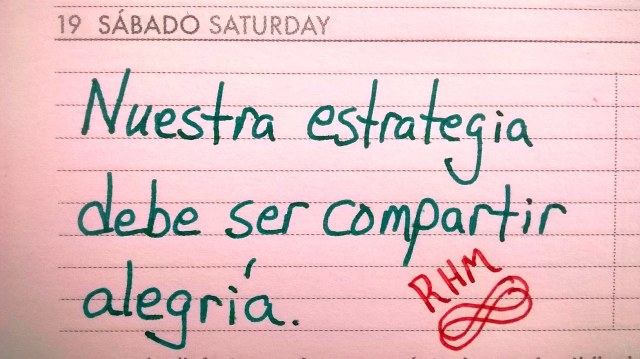 19 SÁBADO SATURDAY
Nuestra estrategia
debe ser compartir
alegría.
RHM